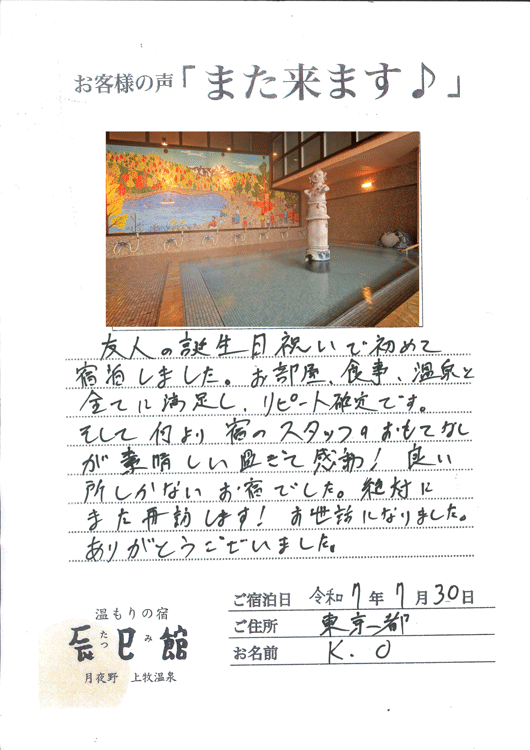 お客様の声「また来ます♪」
友人の誕生日祝いで初めて
宿泊しました。お部屋、食事、温泉と
全てに満足し、リピート確定です。
そして何より宿のスタッフのおもてなし
が素晴しい過ぎて感動！良い
所しかないお宿でした。絶対に
また再訪します！お世話になりました。
ありがとうございました。
ご宿泊日 令和7年7月30日
ご住所 東京都
お名前 K.O
温もりの宿
辰巳館
たつ み
月夜野 上牧温泉